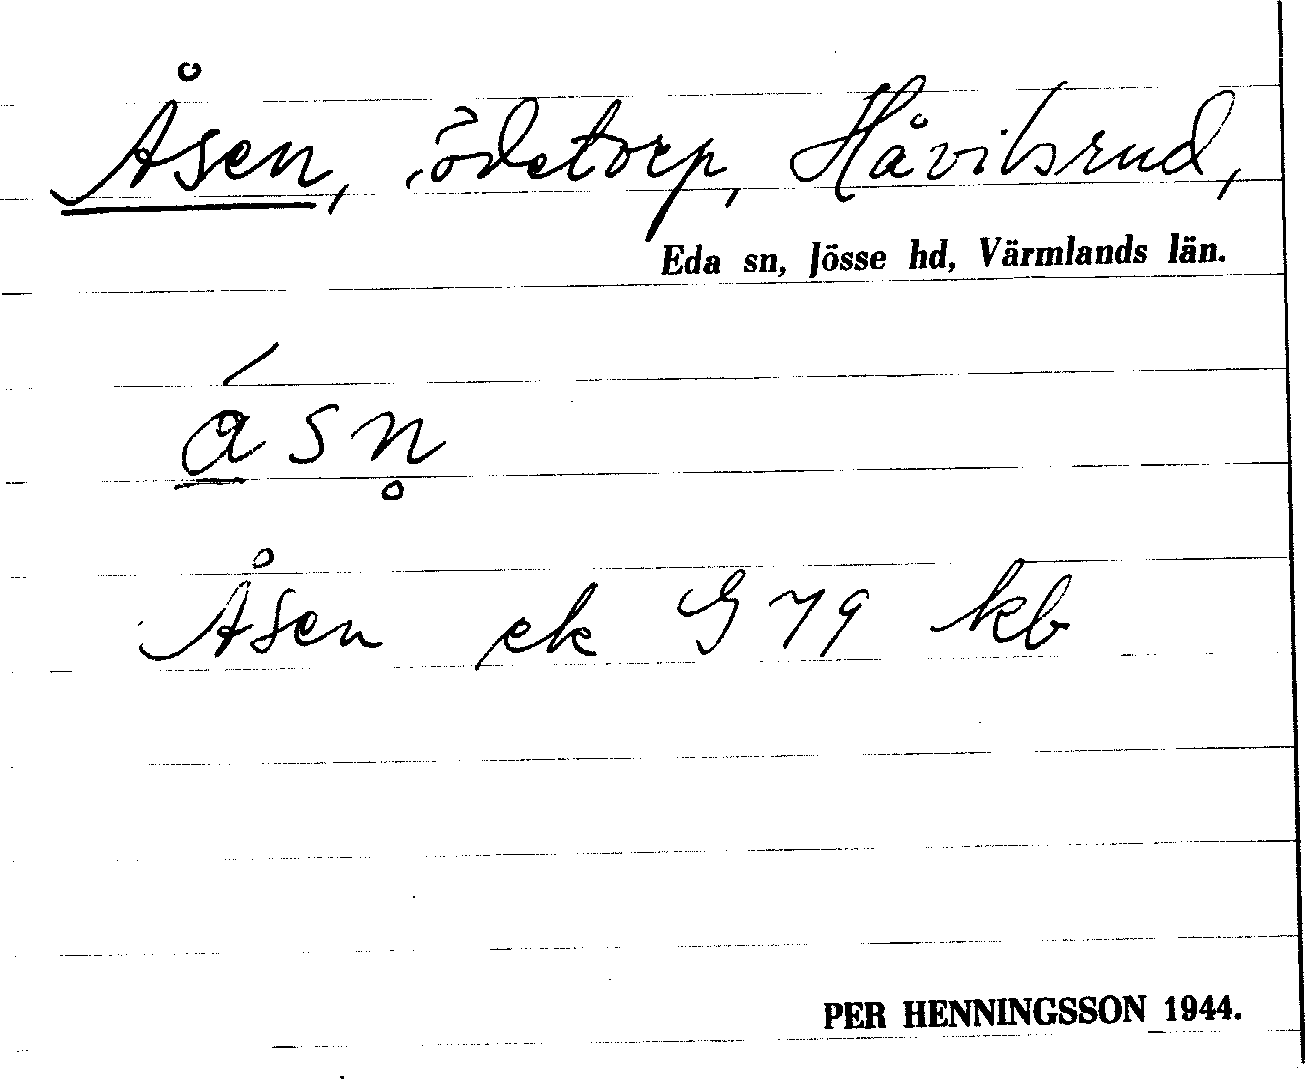 Åsen, ödetorp, Håvilsrud,
Eda sn, Jösse hd, Värmlands län.
á̱sn̥
Åsen ek G 79 kb
PER HENNINGSSON 1944.